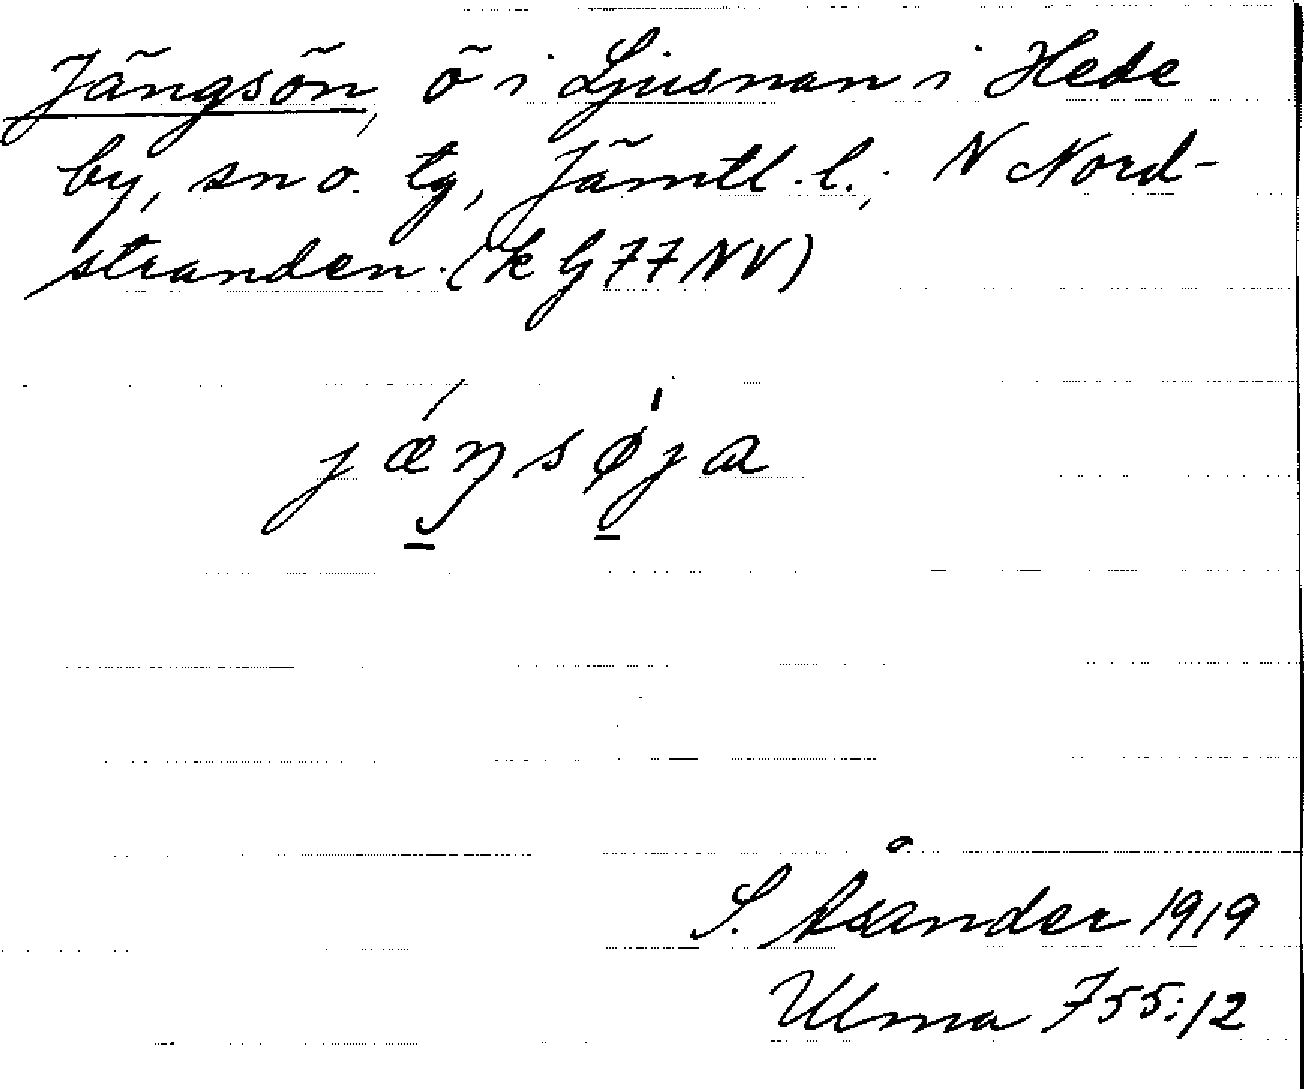 Jängsön, ö i Ljusnan i Hede
by, sn o. tg, Jämtl. l.; N Nord-
stranden. (k G 77 NV)
jæŋsøja
S. Åsander 1919
Ulma 755:12